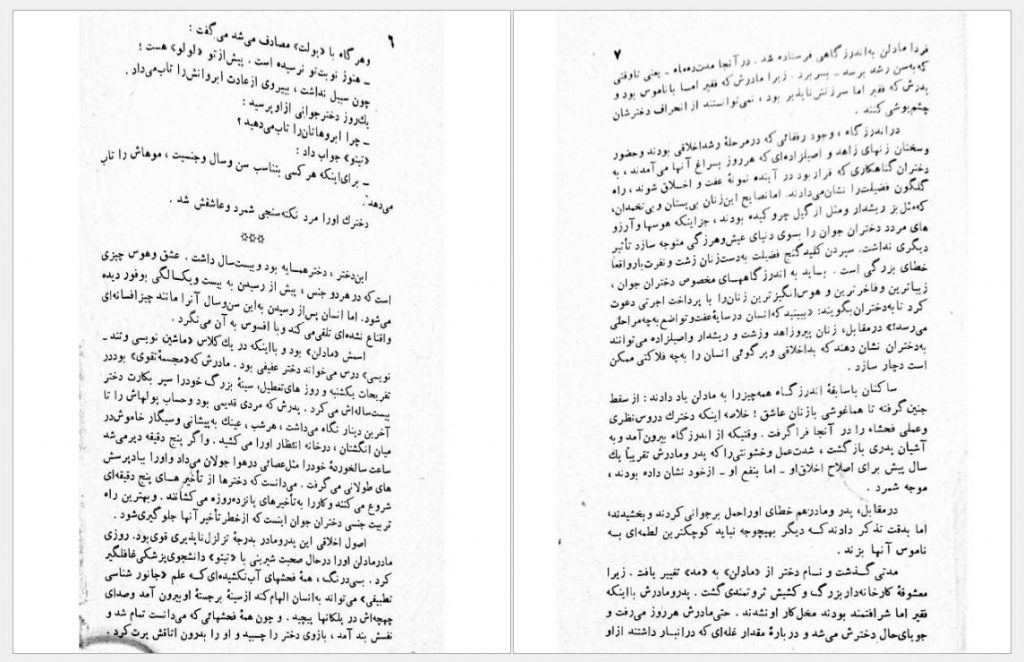 ۶
وهر گاه با «بولت» مصادف می‌شد می‌گفت :
ـ هنوز نوبت‌تو نرسیده است . پیش‌از‌تو «لولو» هست !
چون سبیل نداشت ، بپیروی ازعادت ابروانش‌را تاب‌می‌داد .
یك‌روز دخترجوانی ازاو‌پرسید :
ـ چرا ابروهاتان‌را تاب‌می‌دهید ؟
«تیتو» جواب داد :
ـ برای‌اینکه هر‌کسی بتناسب سن وسال وجنسیت ، موهاش را تاب
می‌دهد .
دخترك اورا مرد نکته‌سنجی شمرد وعاشقش شد .
***
این‌دختر ، دختر‌همسایه بود وبیست‌سال داشت . عشق وهوس چیزی
است که در‌هر‌دو جنس ، پیش از رسیدن به بیست ویکسالگی بوفور دیده
می‌شود. اما انسان پس‌از رسیدن به‌این سن‌وسال آنرا مانند چیز افسانه‌ای
واقناع نشده‌ای تلقی‌می‌کند وبا افسوس به آن می‌نگرد .
اسمش «مادلن» بود و بااینکه در یك‌کلاس «ماشین نویسی وتند ـ
نویسی» درس می‌خواند دختر عفیفی بود . مادرش‌که «مجسمهٔ تقوی» بوددر
تفریحات یکشنبه و روز های‌تعطیل، سینهٔ بزرگ خودرا سپر بکارت دختر
بیست‌ساله‌اش می‌کرد . پدرش که مردی قدیمی بود وحساب پولهاش را تا
آخرین دینار نگاه می‌داشت ، هر‌شب ، عینك به‌پیشانی وسیگار خاموش‌در
میان انگشتان ، درخانه انتظار اورا می کشید . واگر پنج دقیقه دیر‌می‌شد
ساعت سالخوردهٔ خودرا مثل‌عصائی درهوا جولان می‌داد واورا بباد‌پرسش
های طولانی می‌گرفت . می‌دانست که دخترها از تأخیر های پنج دقیقه‌ای
شروع می‌کنند وکاررا به‌تأخیرهای پانزده‌روزه می‌کشانند . وبهترین راه
تربیت جنسی دختران جوان اینست که از‌خطر تأخیر آنها جلو گیری‌شود .
اصول اخلاقی این پدرومادر بدرجهٔ تزلزل‌ناپذیری قوی‌بود. روزی
مادر‌مادلن اورا درحال صحبت شیرینی با «تیتو» دانشجوی‌پزشکی‌غافلگیر
کرد . بسی‌درنگ ، همهٔ فحشهای آب‌نکشیده‌ای که علم «جانور شناسی
تطبیقی» می‌تواند به‌انسان الهام‌کند از‌سینهٔ برجستهٔ اوبیرون آمد وصدای
چهچه‌اش در پلکانها پیچید . و چون همهٔ فحشهائی که می‌دانست تمام شد و
نفسش بند آمد ، بازوی دختر را چسبید و او را بدرون اتاقش پرت‌کرد .
۷
فردا مادلن به‌اندرزگاهی فرستاده شد . در آنجا مدت‌ده‌ماه ـ یعنی تاوقتی
که‌به‌سن رشد برسد ـ بسر‌برد . زیرا مادرش که فقیر امسا باناموس بود و
پدرش که فقیر اما سرزنش‌ناپذیر بود ، نمی‌توانستند از انحراف دخترشان
چشم‌پوشی کنند .
در‌اندرزگاه ، وجود رفقائی که در‌مرحلهٔ رشد‌اخلاقی بودند وحضور
وسخنان زنهای زاهد و اصیلزاده‌ای که هر‌روز بسراغ آنها می‌آمدند ، به
دختران گناهکاری که قرار بود در آینده نمونهٔ عفت و اخلاق شوند ، راه
گلگون فضیلت‌را نشان‌می‌دادند. اما‌نصایح این‌زنان بی‌پستان وبی‌تخمدان،
که‌مثل بز ریشدار ومثل از گیل چروکیده بودند ، جز‌اینکه هوسها وآرزو
های مردد دختران جوان را بسوی دنیای عیش‌وهرزگی متوجه سازد تأثیر
دیگری نداشت. سپردن کلید گنج فضیلت به‌دست‌زنان زشت و نفرت‌بار‌واقعاً
خطای بزرگی است . بساید به اندرزگاههسای مخصوص دختران جوان ،
زیباترین وفاخرترین و هوس‌انگیز‌ترین زنان‌را با پرداخت اجرتی دعوت
کرد تابه‌دختران‌بگویند: «ببینید که‌انسان در‌سایهٔ عفت‌وتواضع به‌چه‌مراحلی
می‌رسد!» درمقابل، زنان پیر‌وزاهد وزشت و ریشدار واصیلزاده می‌توانند
به‌دختران نشان دهند که بد‌اخلاقی و‌پر‌گوئی انسان را به‌چه فلاکتی ممکن
است دچار سازد .
ساکنان باسابقهٔ اندرزگاه همه‌چیز‌را به مادلن یاد دادند : از سقط
جنین گرفته تا هماغوشی بازنان عاشق ! خلاصه اینکه دخترك دروس‌نظری
وعملی فحشاء را در آنجا فرا گرفت . وقتیکه از اندرزگاه بیرون‌آمد و به
آشیان پدری باز گشت ، شدت‌عمل وخشونتی‌را که پدر ومادرش تقریباً یك
سال پیش برای اصلاح اخلاق‌او ـ اما بنفع او ـ از‌خود نشان داده بودند ،
موجه شمرد .
درمقابل، پدر ومادرهم خطای اوراحمل بر‌جوانی کردند وبخشیدند؛
اما بدقت تذکر دادند که دیگر بهیچوجه نباید کوچکترین لطمه‌ای به
ناموس آنها بزند .
مدتی گذشت و نسام دختر از «مادلن» به «مد» تغییر یافت . زیرا
معشوقهٔ کارخانه‌دار بزرگ و کشیش ثروتمندی گشت . پدر‌ومادرش بااینکه
فقیر اما شرافتمند بودند مخل‌کار اونشدند . حتی‌مادرش هر‌روز می‌رفت و
جویای‌حال دخترش می‌شد و دربارهٔ مقدار غله‌ای که در‌انبار داشتند از‌او